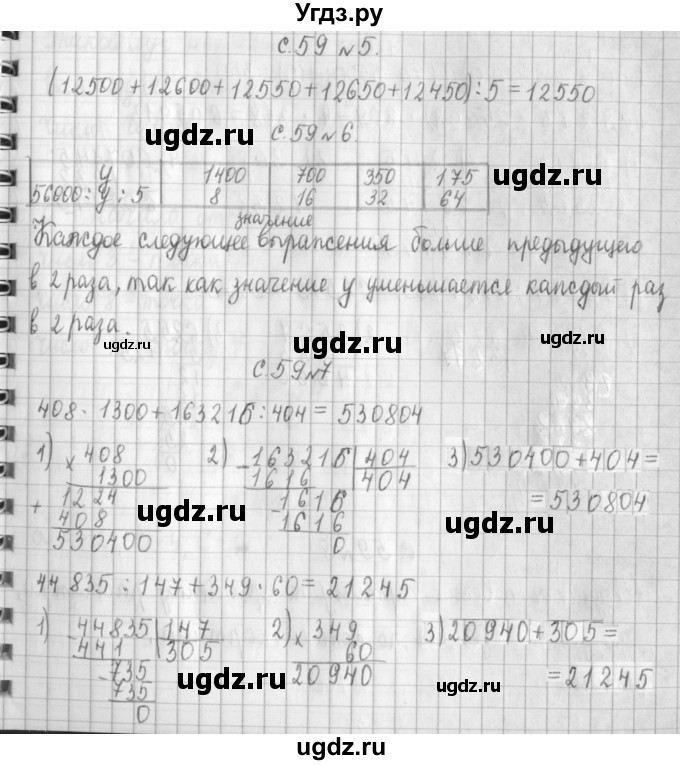 Угдз.ру
с.59 №5.
(12500+12600+12550+12650+12450):5=12550
ugdz.ru ugdz.ru
с.59 №6.
у 1400 700 350 175
56000:у:5 8 16 32 64
значение
Каждое следующее выражения больше предыдущего
в 2 раза, так как значение у уменьшается каждый раз
в 2 раза.
ugdz.ru ugdz.ru ugdz.ru
с.59 №7
408·1300+163216:404=530804
1) 408 2) 163216 404 3) 530400+404=
× 1300 1616 404 =530804
+ 1224 - 1616
408 1616
530400 0
ugdz.ru ugdz.ru ugdz.ru
44835:147+349·60=21245
1) 44835 147 2) 349 3) 20940+305=
441 305 × 60 =21245
- 735 20940
735
0
ugdz.ru ugdz.ru
ugdz.ru